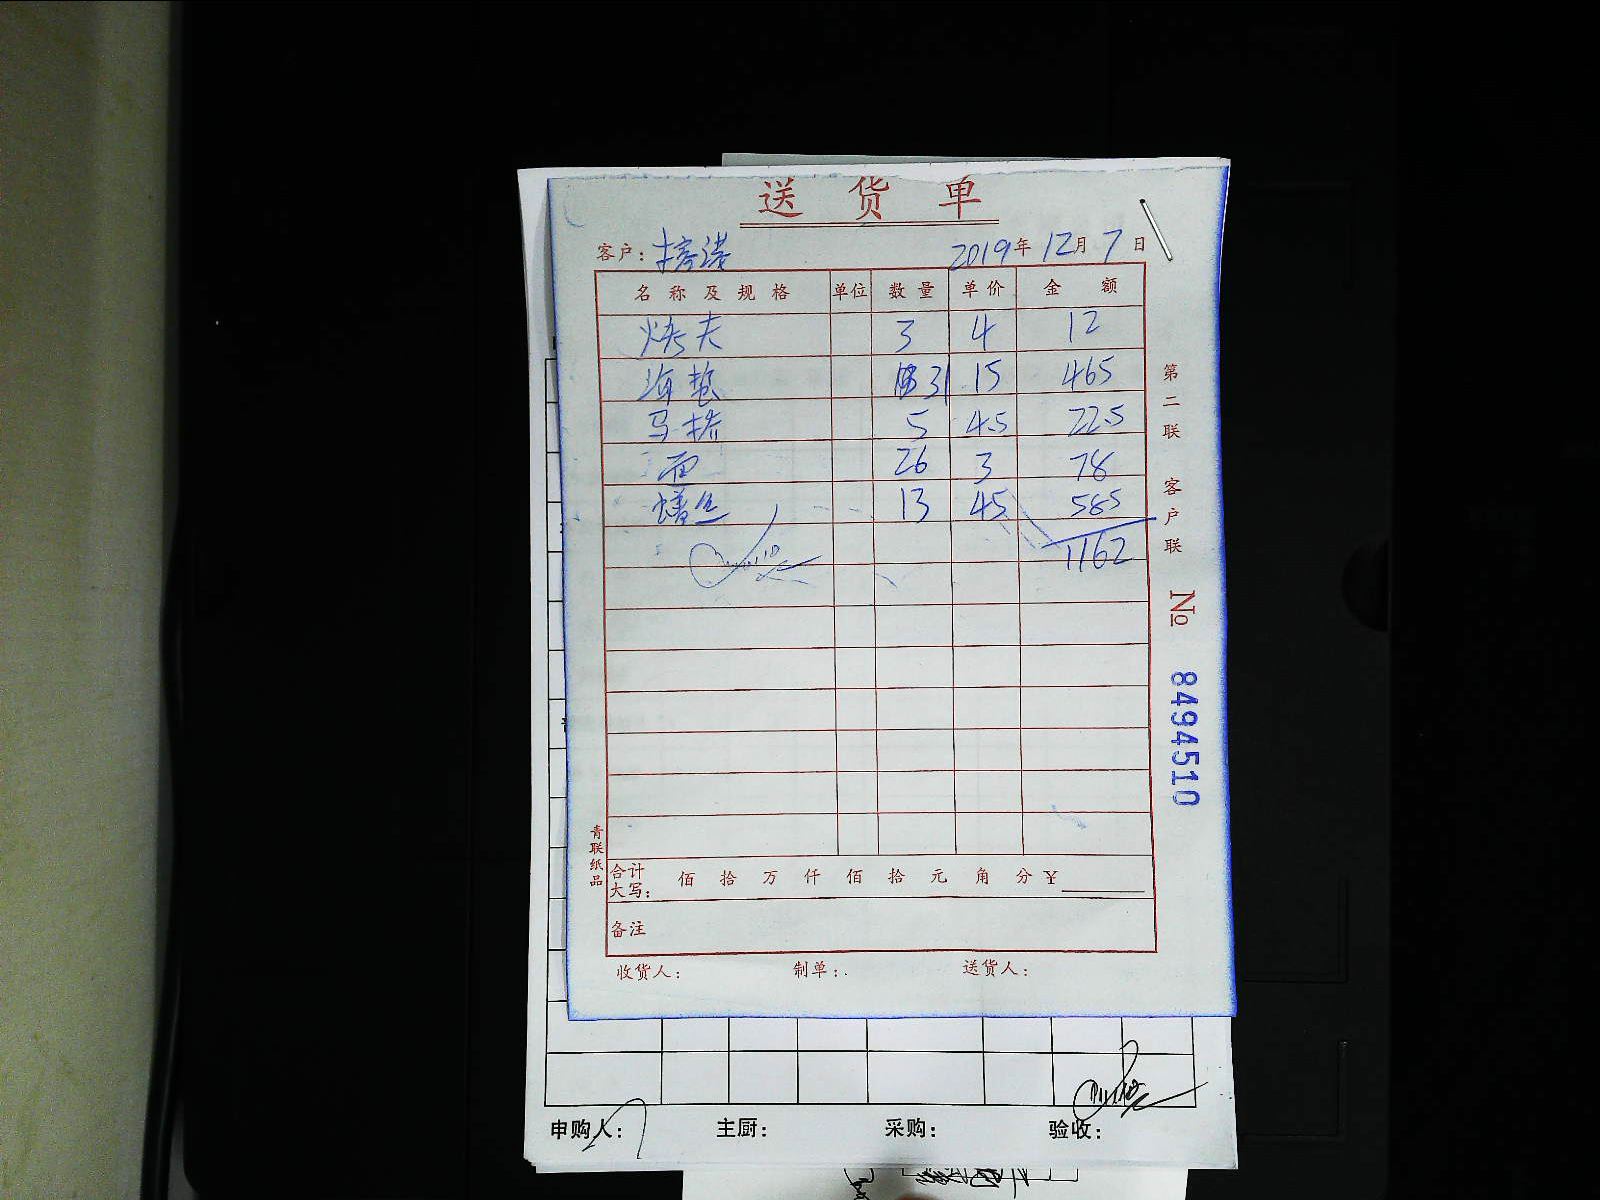 送 货 单
客户: 2019年 12月 7日
名称及规格 单位 数量 单价 金额
烤夫 3 4 12
海蜇 31 15 465
马桥 5 4.5 22.5
面 26 3 78
鳝丝 13 45 585
1162
第二联 客户联
No 8494510
青联纸品
合计大写: 佰 拾 万 仟 佰 拾 元 角 分 ¥
备注
收货人: 制单: 送货人:
申购人: 主厨: 采购: 验收: